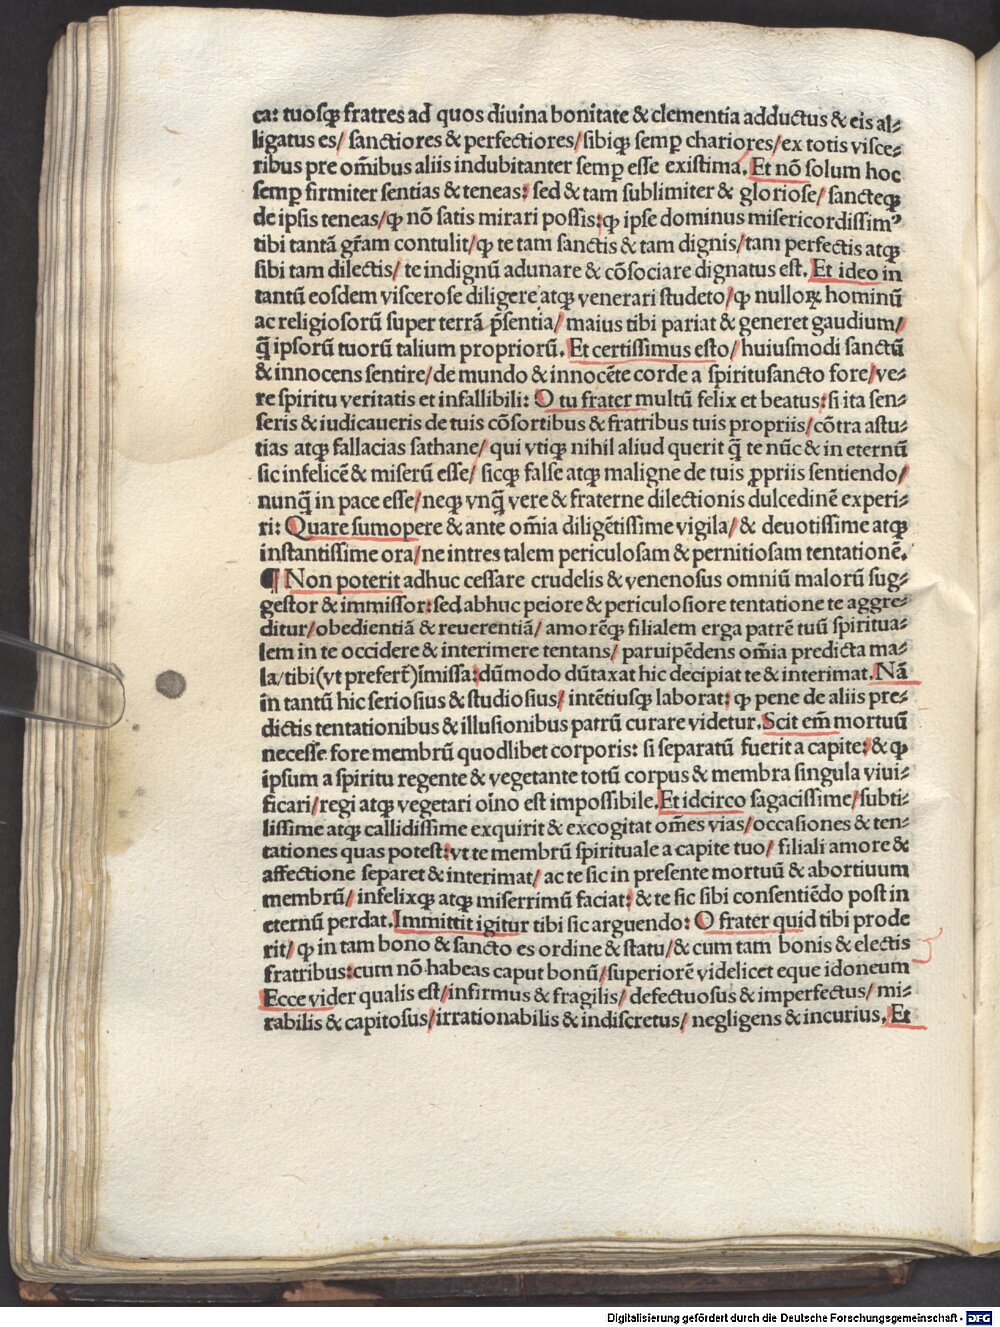 ca: tuosqꝫ fratres ad quos diuina bonitate & clementia adductus & eis al⸗
ligatus es/ sanctiores & perfectiores/sibiqꝫ semꝑ chariores/ex totis visce⸗
ribus pre om̄ibus aliis indubitanter semꝑ esse existima. Et nō solum hoc
semꝑ firmiter sentias & teneas: sed & tam sublimiter & gloriose/ sancteqꝫ
de ipsis teneas/ꝙ nō satis mirari possis:ꝙ ipse dominus misericordissimꝰ
tibi tantā gr̄am contulit/ꝙ te tam sanctis & tam dignis/tam perfectis atqꝫ
sibi tam dilectis/ te indignū adunare & cōsociare dignatus est. Et ideo in
tantū eosdem viscerose diligere atqꝫ venerari studeto/ꝙ nulloꝝ hominū
ac religiosorū super terrā p̄sentia/ maius tibi pariat & generet gaudium/
q̄ ipsorū tuorū talium propriorū. Et certissimus esto/ huiusmodi sanctū
& innocens sentire/de mundo & innocēte corde a spiritusancto fore/ve⸗
re spiritu veritatis et infallibili: O tu frater multū felix et beatus:si ita sen⸗
seris & iudicaueris de tuis cōsortibus & fratribus tuis propriis/cōtra astu⸗
tias atqꝫ fallacias sathane/ qui vtiqꝫ nihil aliud querit q̄ te nūc & in eternū
sic infelicē & miserū esse/ sicqꝫ false atqꝫ maligne de tuis ꝓpriis sentiendo/
nunq̄ in pace esse/neqꝫ vnq̄ vere & fraterne dilectionis dulcedinē experi⸗
ri: Quare sumopere & ante om̄ia diligētissime vigila/ & deuotissime atqꝫ
instantissime ora/ne intres talem periculosam & pernitiosam tentationē.
¶ Non poterit adhuc cessare crudelis & venenosus omniū malorū sug⸗
gestor & immissor:sed abhuc peiore & periculosiore tentatione te aggre⸗
ditur/obedientiā & reuerentiā/ amorēqꝫ filialem erga patrē tuū spiritua⸗
lem in te occidere & interimere tentans/ paruipēdens om̄ia predicta ma⸗
la/tibi(vt prefert̄)īmissa:dūmodo dūtaxat hic decipiat te & interimat. Nā
in tantū hic seriosius & studiosius/ intētiusqꝫ laborat: ꝙ pene de aliis pre⸗
dictis tentationibus & illusionibus patrū curare videtur. Scit em̄ mortuū
necesse fore membrū quodlibet corporis: si separatū fuerit a capite:& ꝙ
ipsum a spiritu regente & vegetante totū corpus & membra singula viui⸗
ficari/regi atqꝫ vegetari oīno est impossibile. Et idcirco sagacissime/subti⸗
lissime atqꝫ callidissime exquirit & excogitat om̄es vias/occasiones & ten⸗
tationes quas potest:vt te membrū spirituale a capite tuo/ filiali amore &
affectione separet & interimat/ ac te sic in presente mortuū & abortiuum
membrū/ infelixqꝫ atqꝫ miserrimū faciat: & te sic sibi consentiēdo post in
eternū perdat. Immittit igitur tibi sic arguendo: O frater quid tibi prode
rit/ ꝙ in tam bono & sancto es ordine & statu/& cum tam bonis & electis
fratribus:cum nō habeas caput bonū/superiorē videlicet eque idoneum
Ecce vider qualis est/infirmus & fragilis/ defectuosus & imperfectus/ mi⸗
rabilis & capitosus/irrationabilis & indiscretus/ negligens & incurius. Et
Digitalisierung gefördert durch die Deutsche Forschungsgemeinschaft - DFG